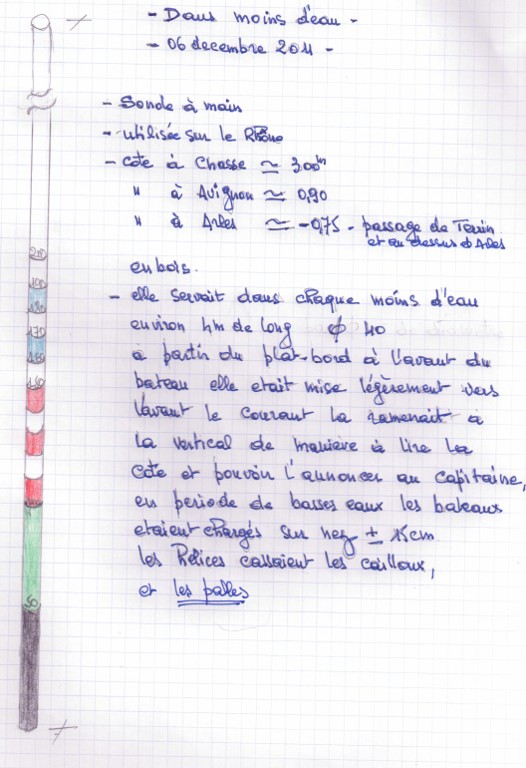 - Dans moins d'eau -
- 06 decembre 2011 -
- Sonde à main
- utilisée sur le Rhône
- cote à Chasse ≃ 3.00m
" à Avignon ≃ 0,90
" à Arles ≃ -0,75 - passage de Terrin
et au dessus d'Arles
en bois.
- elle servait dans chaque moins d'eau
environ 4m de long ϕ 40
à partir du plat-bord à l'avant du
bateau elle etait mise légèrement vers
l'avant le courant la ramenait à
la vertical de manière à lire la
cote et pouvoir l'annoncer au capitaine,
en periode de basses eaux les bateaux
etaient chargés sur nez ± 15cm
les Hélices cassaient les cailloux,
et les palles
200
190
180
170
160